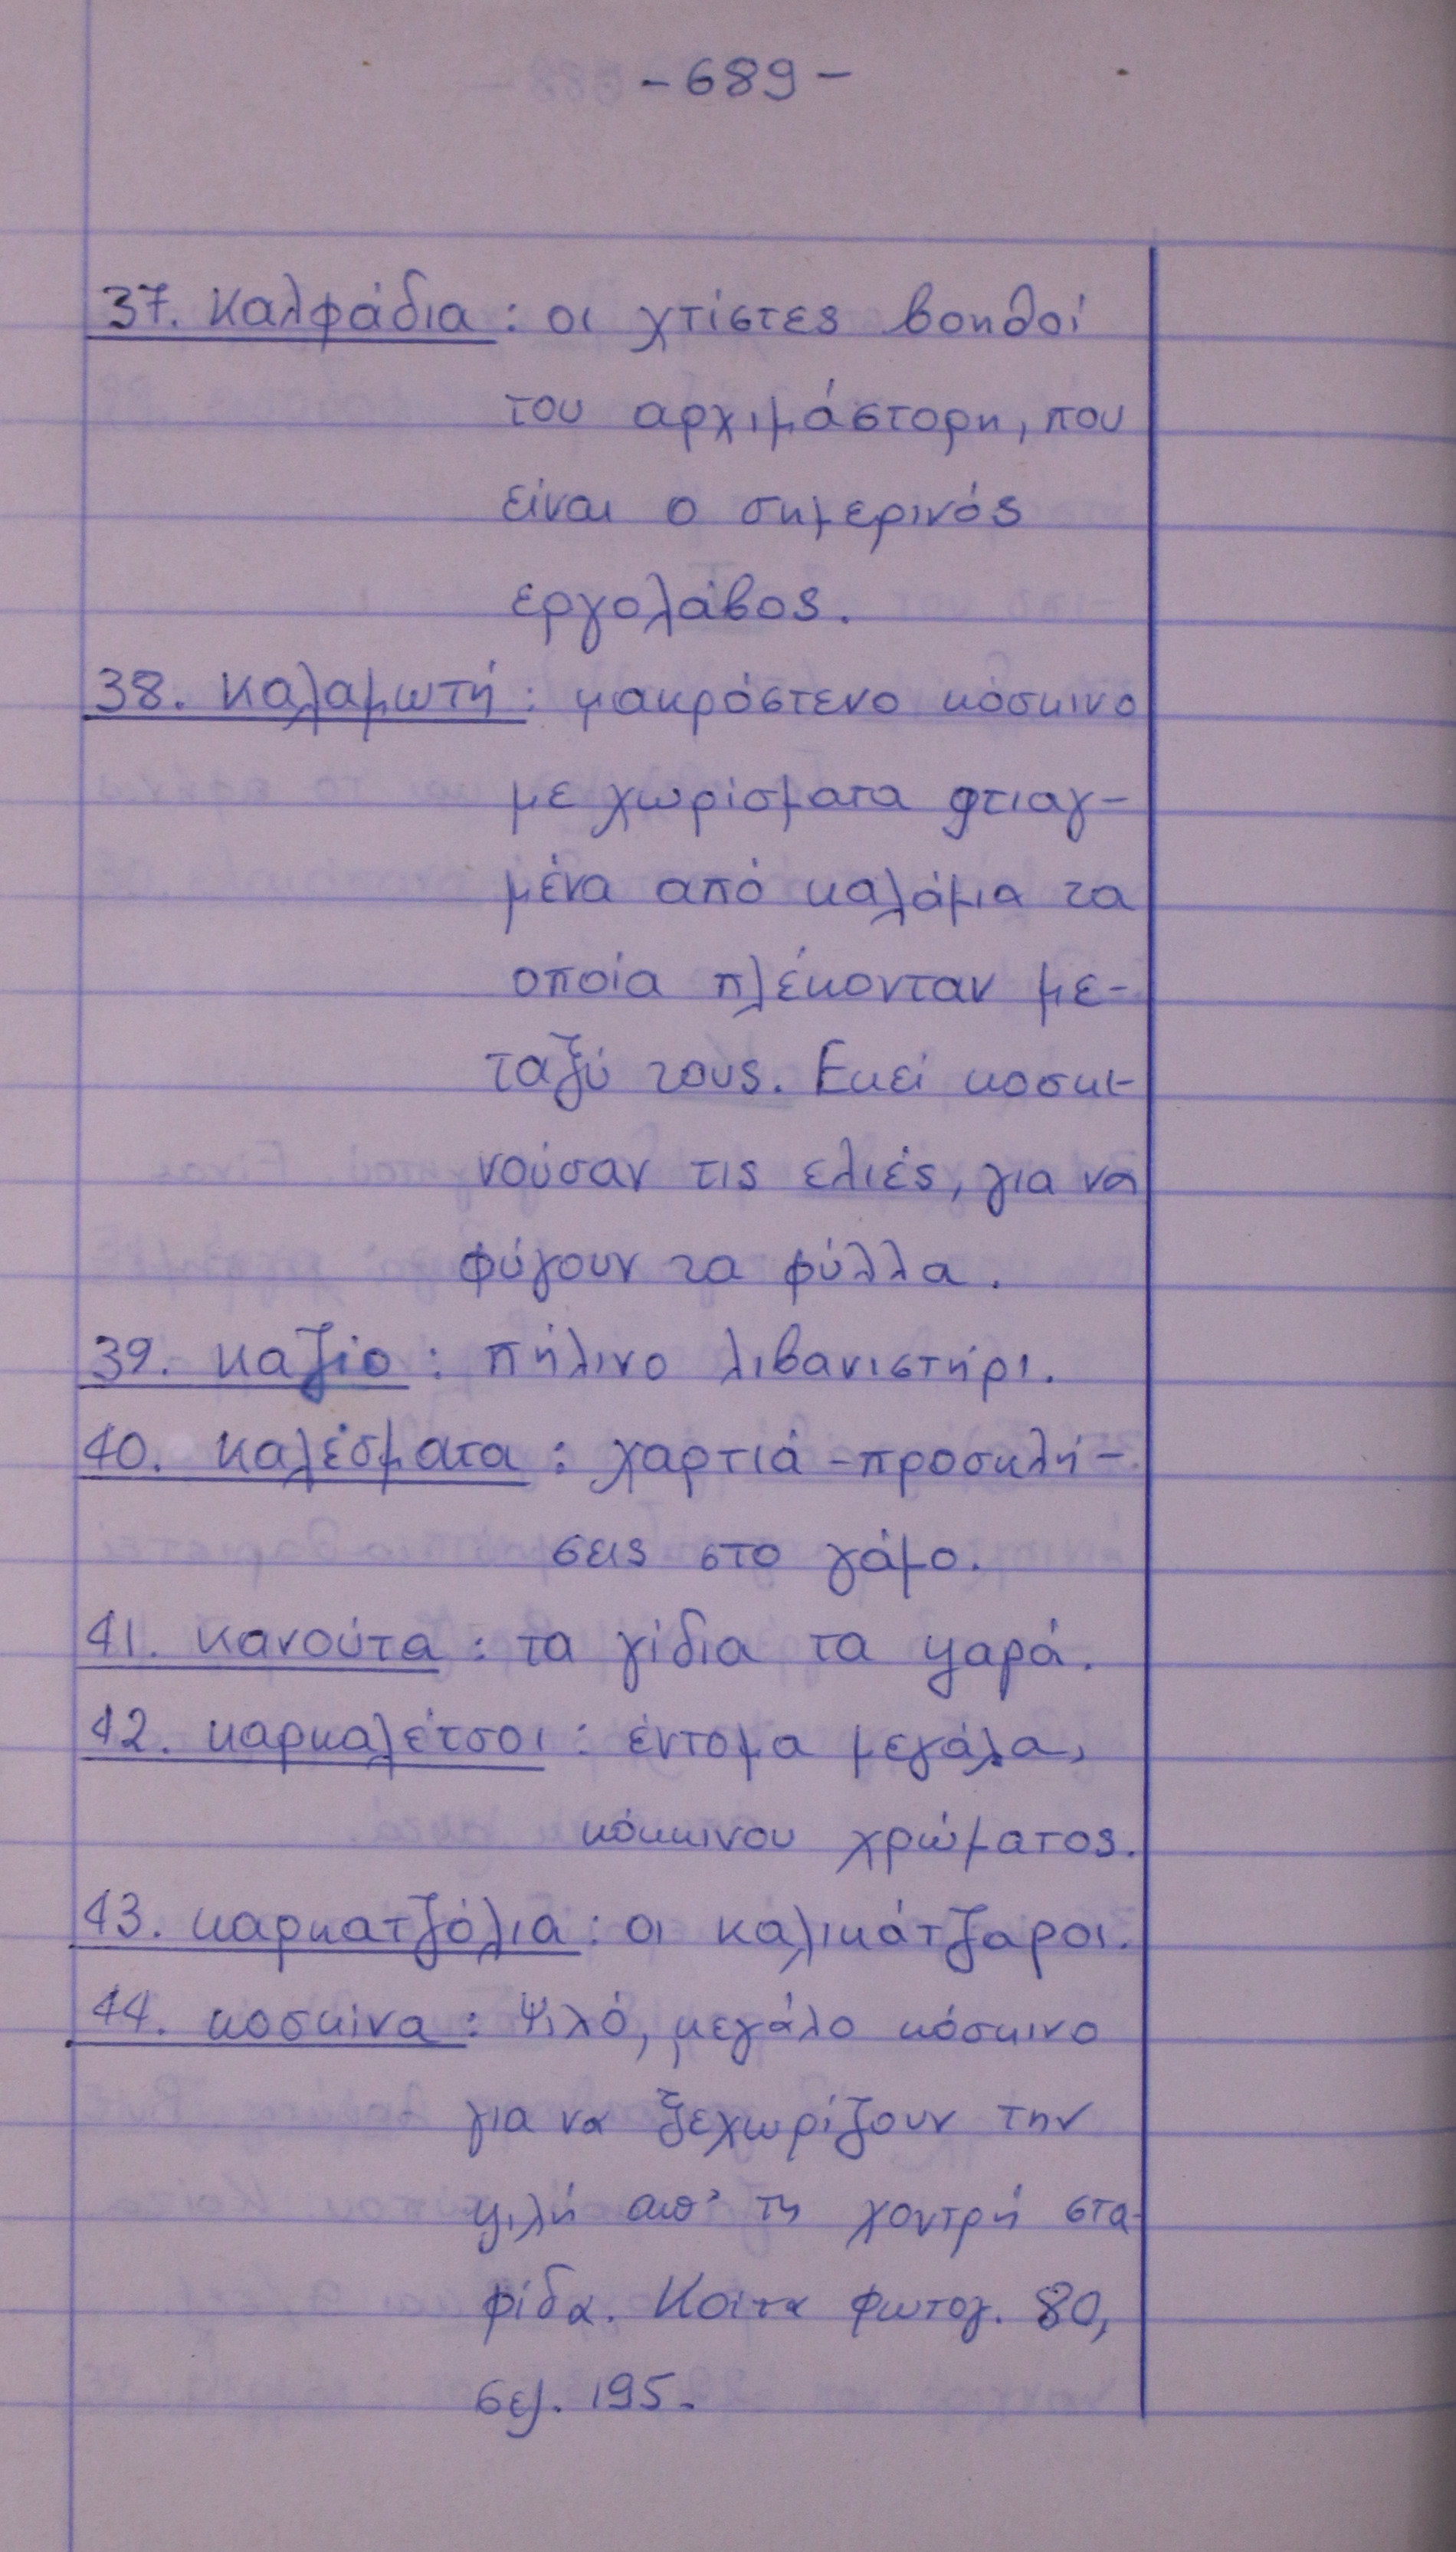 -689-
37. καλφάδια : οι χτίστες βοηθοί
του αρχιμάστορη, που
είναι ο σημερινός
εργολάβος.
38. καλαμωτή : μακρόστενο κόσκινο
με χωρίσματα φτιαγ-
μένα από καλάμια τα
οποία πλέκονταν με-
ταξύ τους. Εκεί κοσκι-
νούσαν τις ελιές, για να
φύγουν τα φύλλα.
39. καζίο : πήλινο λιβανιστήρι.
40. καλέσματα : χαρτιά -προσκλή-
σεις στο γάμο.
41. κανούτα : τα γίδια τα ψαρά.
42. καρκαλέτσοι : έντομα μεγάλα,
κόκκινου χρώματος.
43. καρκατζόλια : οι καλικάτζαροι.
44. κοσκίνα : Ψιλό, μεγάλο κόσκινο
για να ξεχωρίζουν την
ψιλή απ' τη χοντρή στα-
φίδα. Κοίτα φωτογ. 80,
σελ. 195.